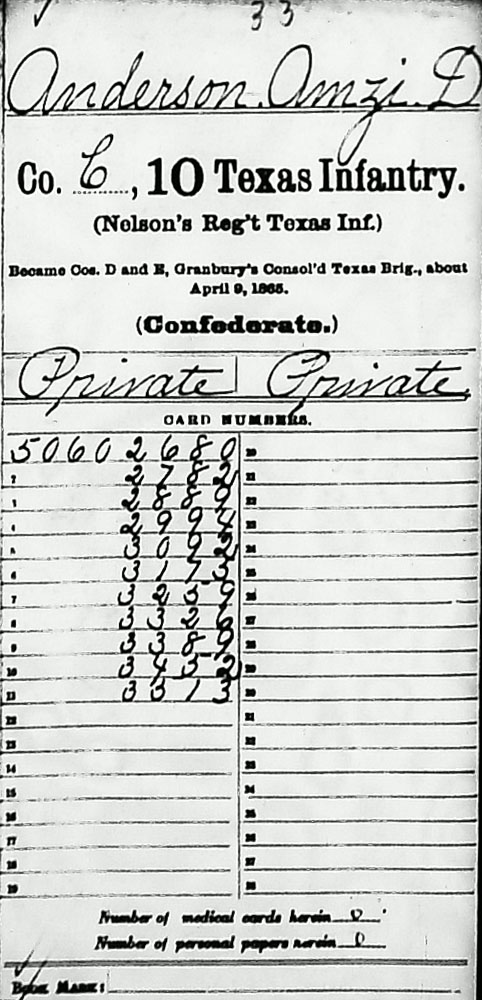 33
Anderson, Amzi. D
Co. C, 10 Texas Infantry.
(Nelson's Reg't Texas Inf.)
Became Cos. D and E, Granbury's Consol'd Texas Brig., about
April 9, 1865.
(Confederate.)
Private Private
CARD NUMBERS.
50602680 20
2 2782 21
3 2889
4 2994 23
5 3092 24
6 3173 25
7 3259 26
8 3326 27
9 3389 28
10 3452 29
11 3513
12 31
13 32
14 33
15 34
16 35
17 36
18 37
19 38
Number of medical cards herein 0
Number of personal papers herein 0
BOOK MARK: